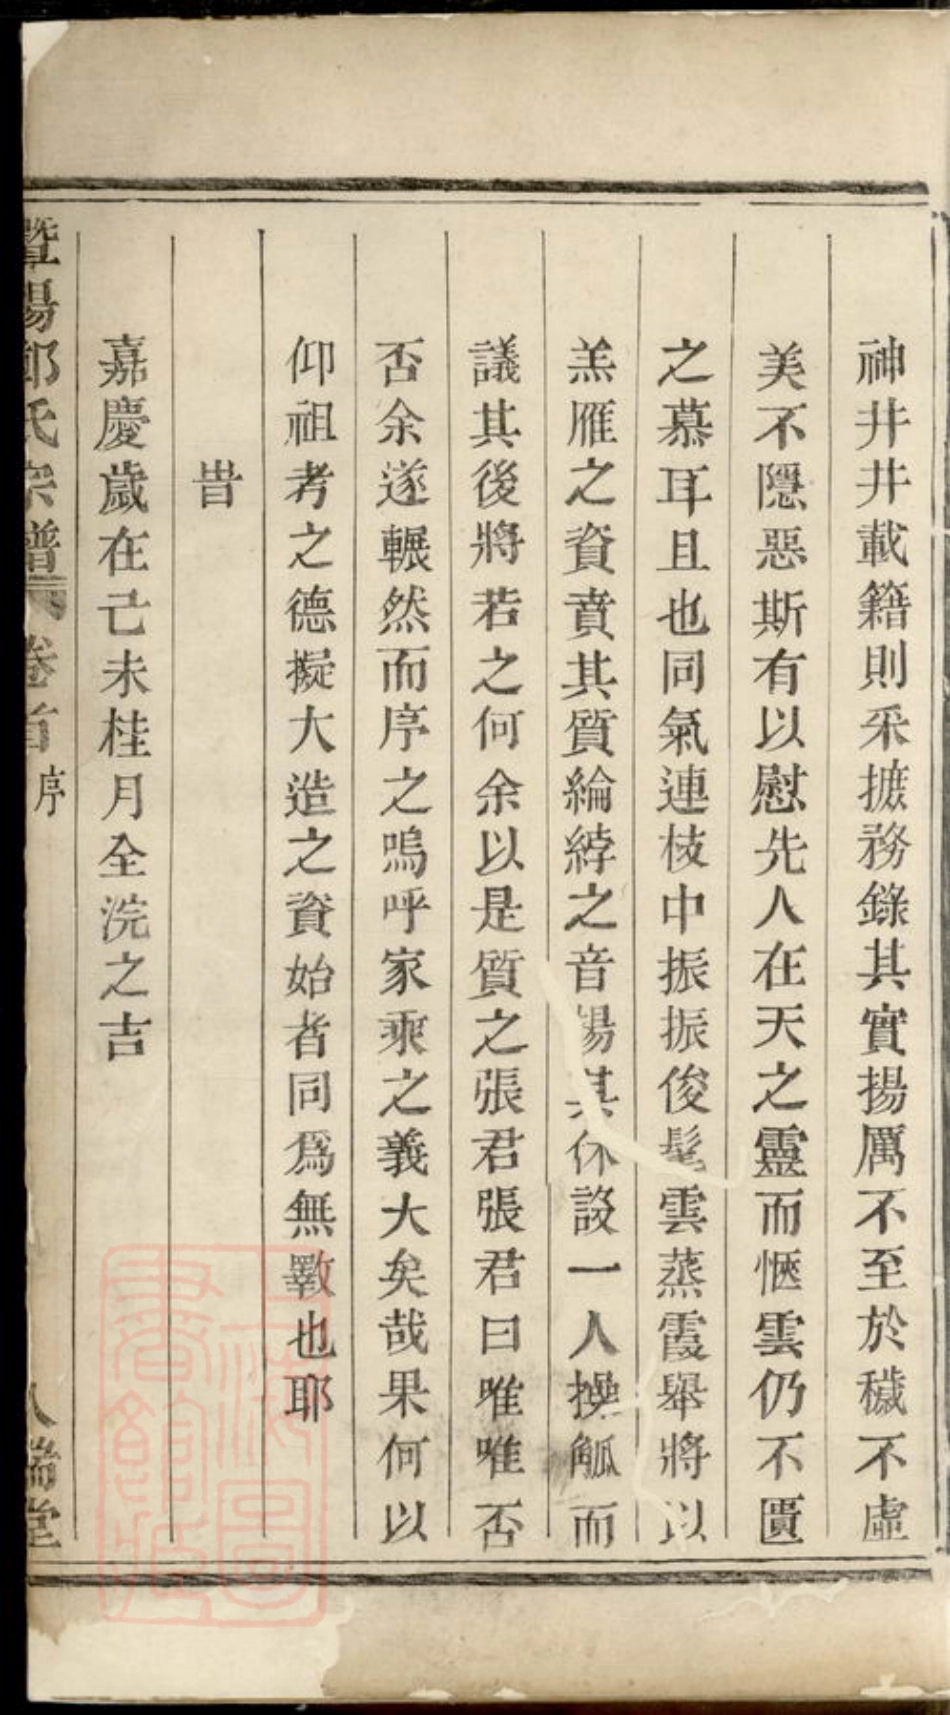 神井井載籍則采摭務錄其實揚厲不至於穢不虛
美不隱惡斯有以慰先人在天之靈而愜雲仍不匱
之慕耳且也同氣連枝中振振俊髦雲蒸霞舉將以
羔雁之資賁其質綸綍之音揚其休設一人操觚而
議其後將若之何余以是質之張君張君曰唯唯否
否余遂冁然而序之嗚呼家乘之義大矣哉果何以
仰祖考之德擬大造之資始者同爲無斁也耶
旹
嘉慶歲在己未桂月全浣之吉
暨陽郭氏宗譜 卷首 序 八 瑞堂
上海圖書館藏